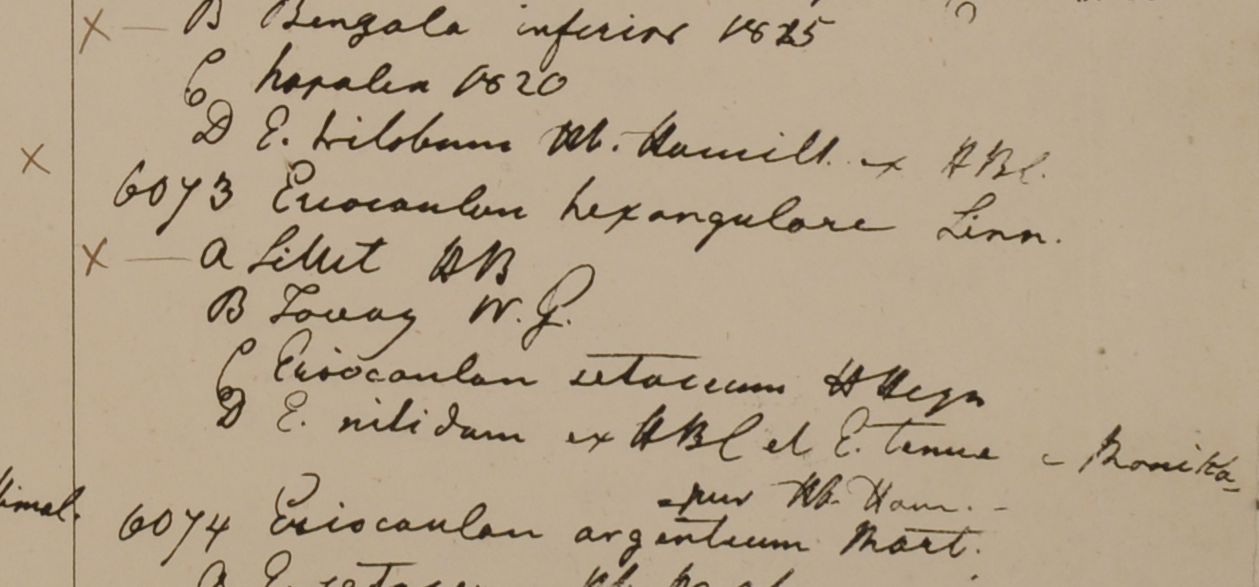 × — B Bengala inferior 1825
C hapalia 1820
× D E. trilobum Hb. Hamilt. ex HBC.
6073 Eriocaulon hexangulare Linn.
× — a Sillet HB
B Tavoy W. G.
C Eriocaulon setaceum H Heyn
D E. nitidum ex HBC et E. tenue - Monika-
-pur Hb. Ham. -
himal.
6074 Eriocaulon argenteum Mart.